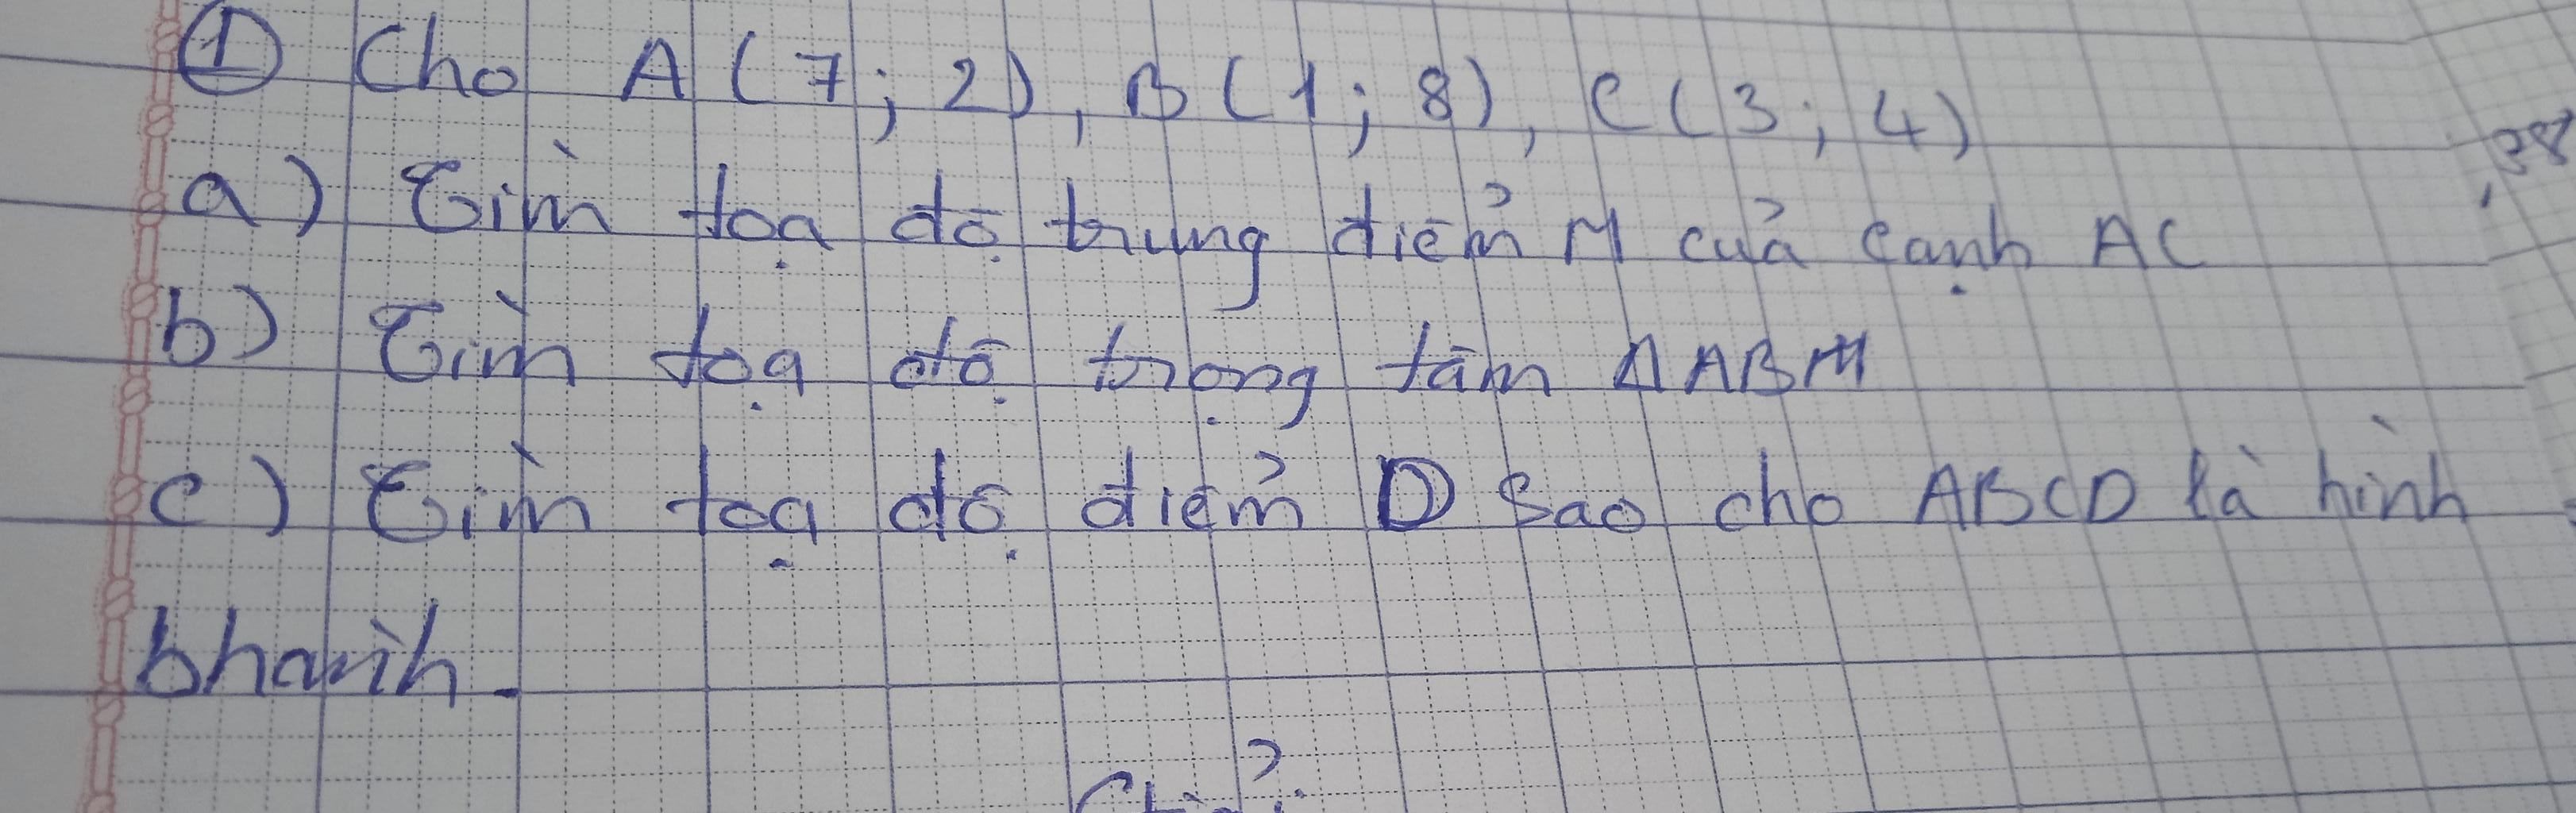 ① Cho A (7 ; 2), B (1 ; 8), C (3 ; 4)
a) Tìm toạ độ trung điểm M của cạnh AC
b) Tìm toạ độ trọng tâm Δ ABM
c) Tìm toạ độ điểm D sao cho ABCD là hình
bhành.